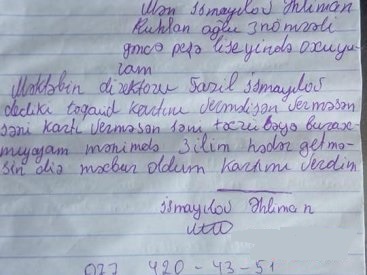 Mən İsmayılov Əhliman
Ruhlan oğlu 3 nömrəli
gəncə peşə liseyində oxuyu-
ram
Məktəbin direktoru Fazil ismayılov
dediki təqaüd kartını verməlisən verməsən
səni kartı verməsən səni təcrübəyə burax-
mıyacam mənimdə 3 ilim hədər getmə-
sin diə məcbur oldum kartımı verdim
ismayılov Əhliman
077 420-43-51